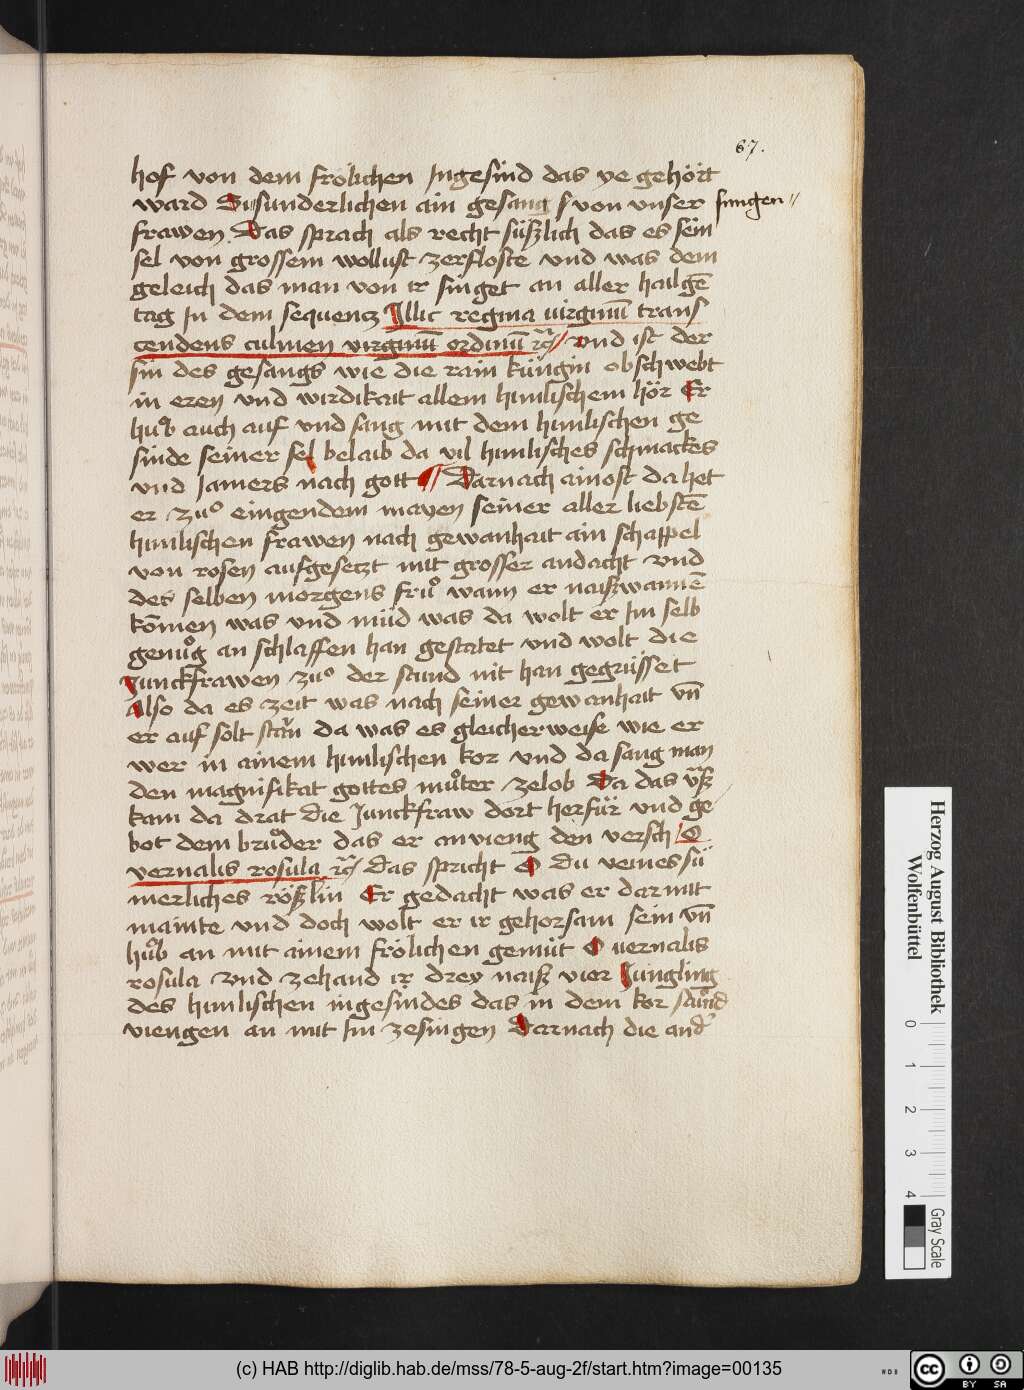 67.
hof von dem frölichen Ingesind das ye gehört
ward Susunderlichen ain gesang ſ von unser sungen //
frawen. Das sprach als recht süszlich das es sein
sel von grossem wollust zerfloste vnd was dem
geleich das man von ir singet an aller hailgē
tag In dem sequencz Illic regina virginū trans
cendens culmen virginū ordinū rc̃ // vnd ist der
sin des gesangs wie die rain küngin obschwebt
in eren vnd wirdikait allem himlischem hör Er
huͦb auch auf vnd sang mit dem himlischen ge
sinde seiner sel belaib da vil himlisches schmackes
vnd Jamers nach gott // Darnach ainost da het
er zuͦ eingendem mayen seiner aller liebstē
himlischen frawen nach gewanhait ain schappel
von rosen aufgesetzt mit grosser andacht vnd
des selben morgens fruͦ wann er naiszwannē
kōmen was vnd müd was da wolt er Im selb
genuͦg an schlaffen han gestatet vnd wolt die
Junckfrawen zuͦ der stund nit han gegrüsset
Also da es zeit was nach seiner gewanhait vn̄
er auf solt stān da was es gleicherweise wie er
wer in ainem himlischen kor vnd da sang man
den magnifikat gottes muͦter zelob Da das vsz
kam da drat die Junckfraw dort herfür vnd ge
bot dem bruͦder das er anvieng den versch O
vernalis rosula rc̃ das spricht O du veines sü
merliches röszlin Er gedacht was er darmit
mainte vnd doch wolt er ir gehorsam sein vn̄
huͦb an mit ainem frölichen gemüt O vernalis
rosula vnd zehand ir drey naisz vier Jüngling
des himlischen ingesindes das in dem kor stuͦnd
viengen an mit Im zesingen Darnach die and̾
Herzog August Bibliothek
Wolfenbüttel
0 1 2 3 4
Gray Scale
(c) HAB http://diglib.hab.de/mss/78-5-aug-2f/start.htm?image=00135
WDB
cc BY SA